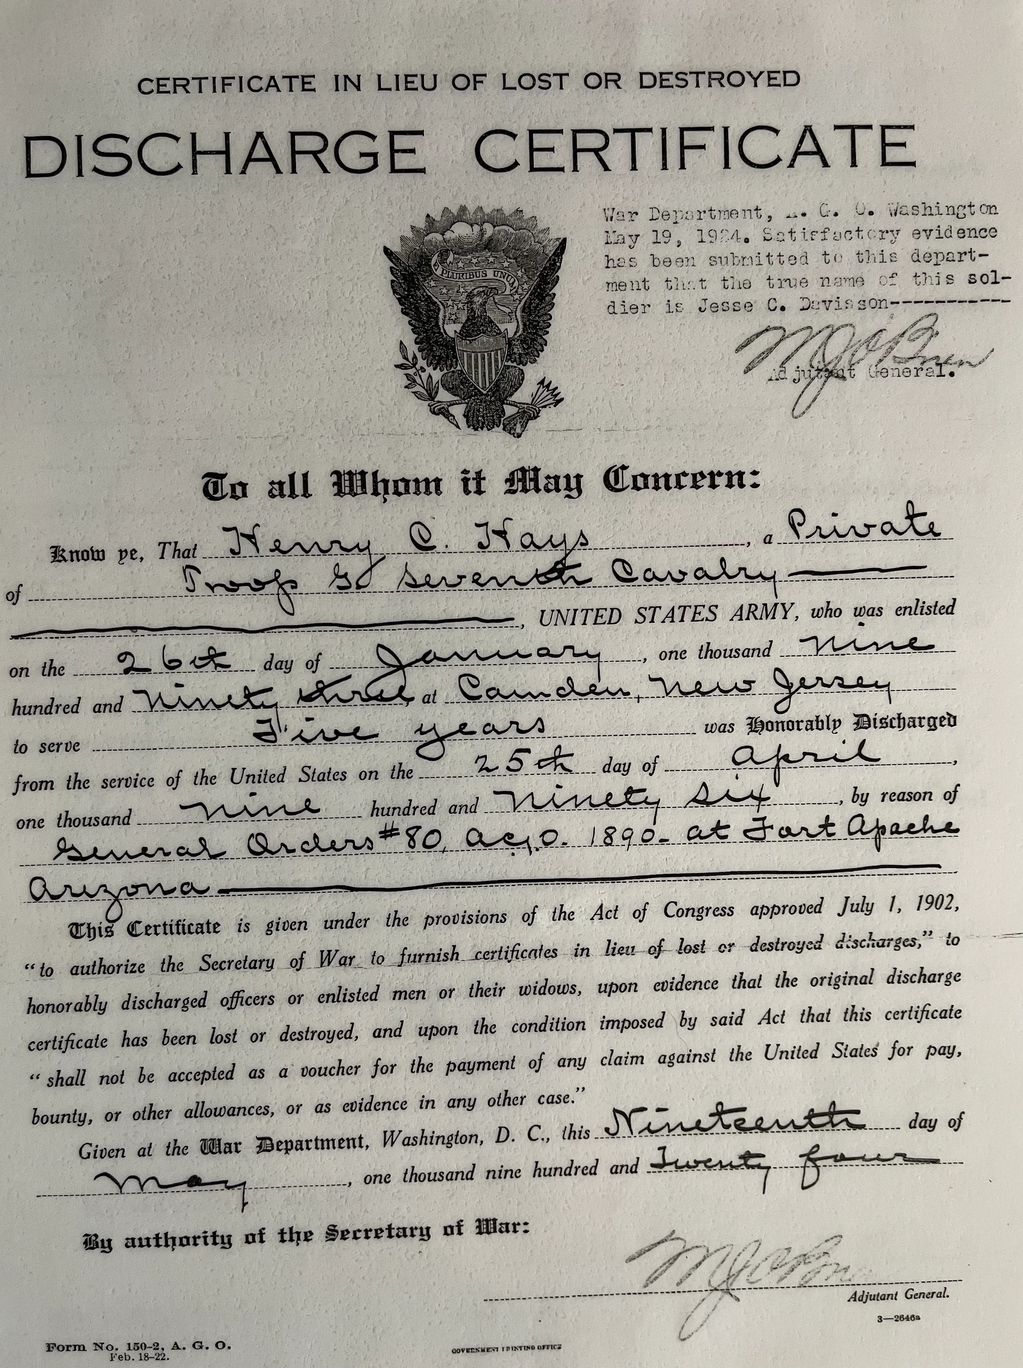 CERTIFICATE IN LIEU OF LOST OR DESTROYED
DISCHARGE CERTIFICATE
PLURIBUS UNUM
War Department, A. G. O. Washington
May 19, 1924. Satisfactory evidence
has been submitted to this depart-
ment that the true name of this sol-
dier is Jesse C. Davisson-----------
Adjutant General.
To all Whom it May Concern:
Know ye, That Henry C. Hays, a Private
of Troop G Seventh Cavalry
, UNITED STATES ARMY, who was enlisted
on the 26th day of January, one thousand Nine
hundred and Ninety three at Camden, New Jersey
to serve Five years was Honorably Discharged
from the service of the United States on the 25th day of April,
one thousand nine hundred and Ninety six, by reason of
General Orders #80, A.G.O. 1890- at Fort Apache
Arizona
This Certificate is given under the provisions of the Act of Congress approved July 1, 1902,
"to authorize the Secretary of War to furnish certificates in lieu of lost or destroyed discharges," to
honorably discharged officers or enlisted men or their widows, upon evidence that the original discharge
certificate has been lost or destroyed, and upon the condition imposed by said Act that this certificate
"shall not be accepted as a voucher for the payment of any claim against the United States for pay,
bounty, or other allowances, or as evidence in any other case."
Given at the War Department, Washington, D. C., this Nineteenth day of
May, one thousand nine hundred and Twenty four
By authority of the Secretary of War:
Adjutant General.
3—2646a
Form No. 150-2, A. G. O.
Feb. 18-22.
GOVERNMENT PRINTING OFFICE